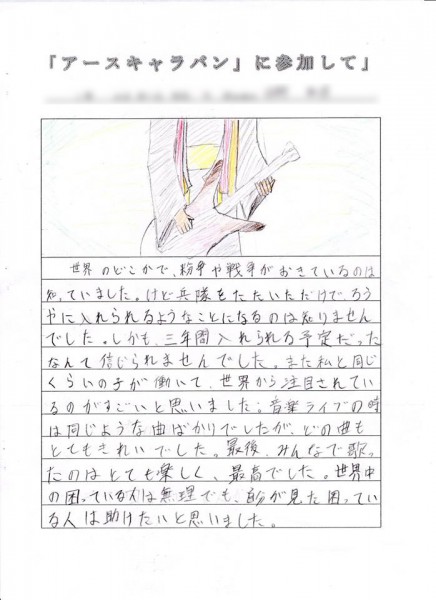 「アースキャラバン」に参加して」
世界のどこかで、紛争や戦争がおきているのは
知っていました。けど兵隊をたたいただけで、ろう
やに入れられるようなことになるのは知りません
でした。しかも、三年間入れられる予定だった
なんて信じられませんでした。また私と同じ
くらいの子が働いて、世界から注目されてい
るのがすごいと思いました。音楽ライブの時
は同じような曲ばかりでしたが、どの曲も
とてもきれいでした。最後、みんなで歌っ
たのはとても楽しく、最高でした。世界中
の困っている人は無理でも、自分が見た困ってい
る人は助けたいと思いました。